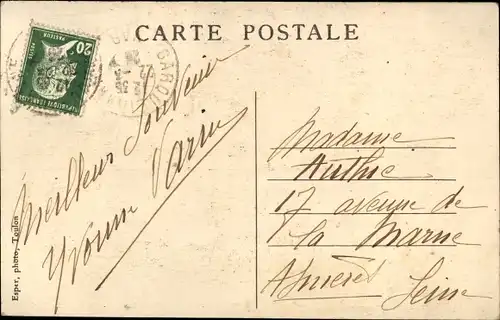 CARTE POSTALE
20
POSTES
PASTEUR
REPUBLIQUE FRANÇAISE
LA GARDE
VAR
Meilleur Souvenir
Yvonne Varin
Madame
Authie
17 avenue de
la Marne
Asnières
Seine
Esper, photo, Toulon